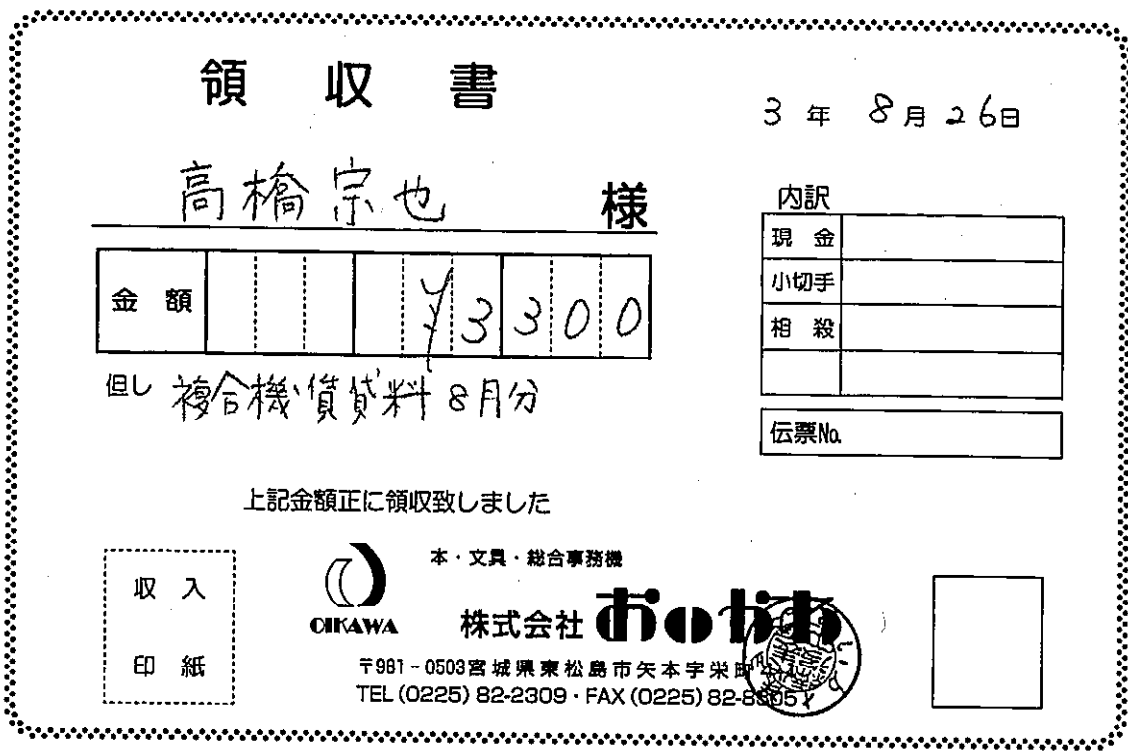 領収書
3年 8月26日
高橋宗也 様
金額 ¥3300
但し 複合機賃貸料 8月分
内訳
現金
小切手
相殺
伝票No.
上記金額正に領収致しました
収入
印紙
OIKAWA
本・文具・総合事務機
株式会社 おいかわ
〒981-0503宮城県東松島市矢本字栄町
TEL (0225) 82-2309・FAX (0225) 82-8305